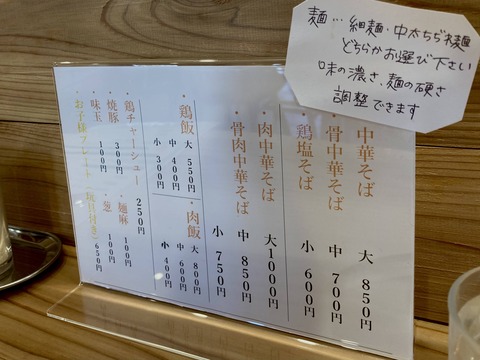 麺…細麺・中太ちぢれ麺
どちらかお選び下さい
味の濃さ、麺の硬さ
調整できます
・中華そば
・骨中華そば
・鶏塩そば
大 850円
中 700円
小 600円
・肉中華そば
・骨肉中華そば
大 1000円
中 850円
小 750円
・鶏飯
大 550円
中 400円
小 300円
・肉飯
大 800円
中 600円
小 400円
鶏チャーシュー 250円
・焼豚 300円
・麺麻 100円
・味玉 100円
・葱 100円
・お子様プレート 650円